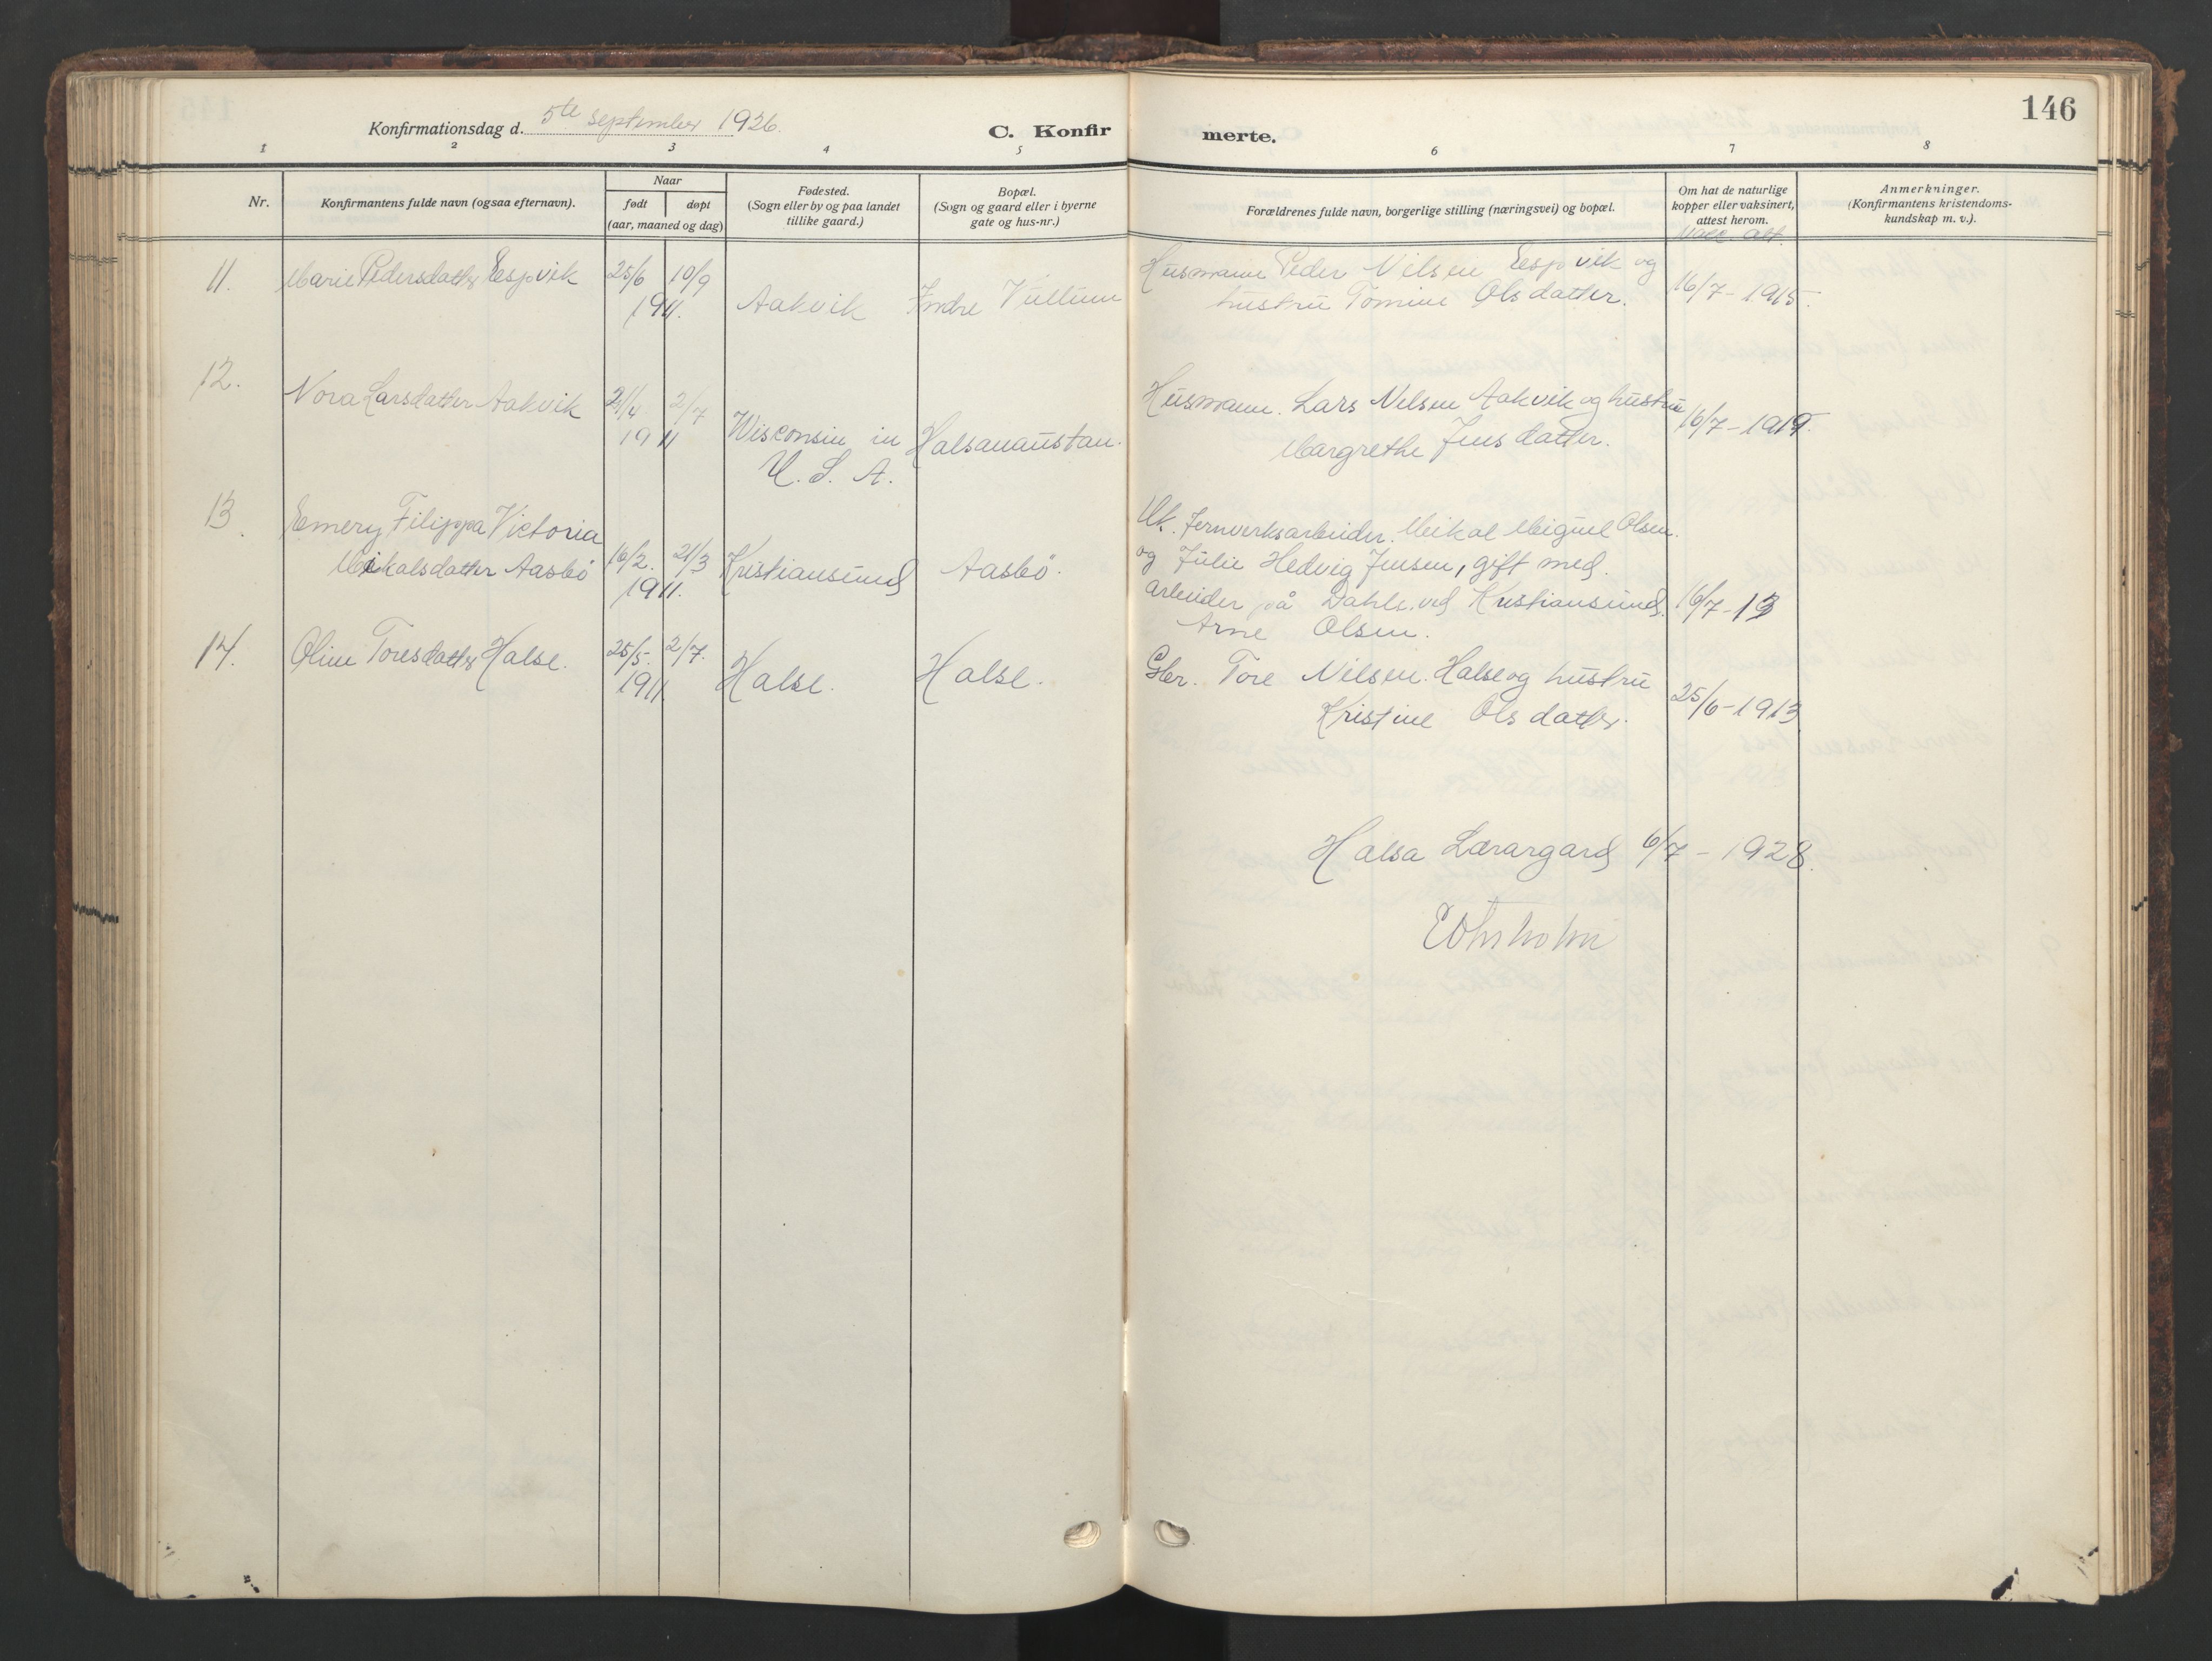 Konfirmationsdag d. 5te september 1926.
C. Konfirmerte.
146
1 2 3 4 5 6 7 8
Nr.
Konfirmantens fulde navn (ogsaa efternavn).
Naar
født
døpt
(aar, maaned og dag)
Fødested.
(Sogn eller by og paa landet
tillike gaard.)
Bopæl.
(Sogn og gaard eller i byerne
gate og hus-nr.)
Forældrenes fulde navn, borgerlige stilling (næringsvei) og bopæl.
Om hat de naturlige
kopper eller vaksinert,
attest herom.
Vacc. att.
Anmerkninger.
(Konfirmantens kristendoms-
kundskap m. v.).
11. Marie Pedersdatter Espvik 25/6 10/9
1911. Aakvik Indre Vullum
Husmann Peder Nilsen Espvik og
hustru Tomine Olsdatter.
16/7 - 1915.
12.
Nora Larsdatter Aakvik 21/4 2/7
1911 Wisconsin in Halsanaustan.
U. S. A.
Husmann. Lars Nilsen Aakvik og hustru
Margrethe Jensdatter.
16/7 - 1919.
13.
Emery Filippa Victoria
Mikalsdatter Aasbö 16/2. 21/3 Kristiansund Aasbö.
1911.
Uk. Jernverksarbeider. Mikal Miguel Olsen.
og Julie Hedvig Jensen, gift med.
arbeider på Dahle ved Kristiansund.
Arne Olsen.
16/7 - 13
14. Oline Toresdatter Halse. 25/5. 2/7.
1911. Halse. Halse.
Gbr. Tore Nilsen Halse og hustru
Kristine Olsdatter.
25/6 - 1913
Halsa Lærargard 6/7 - 1928.